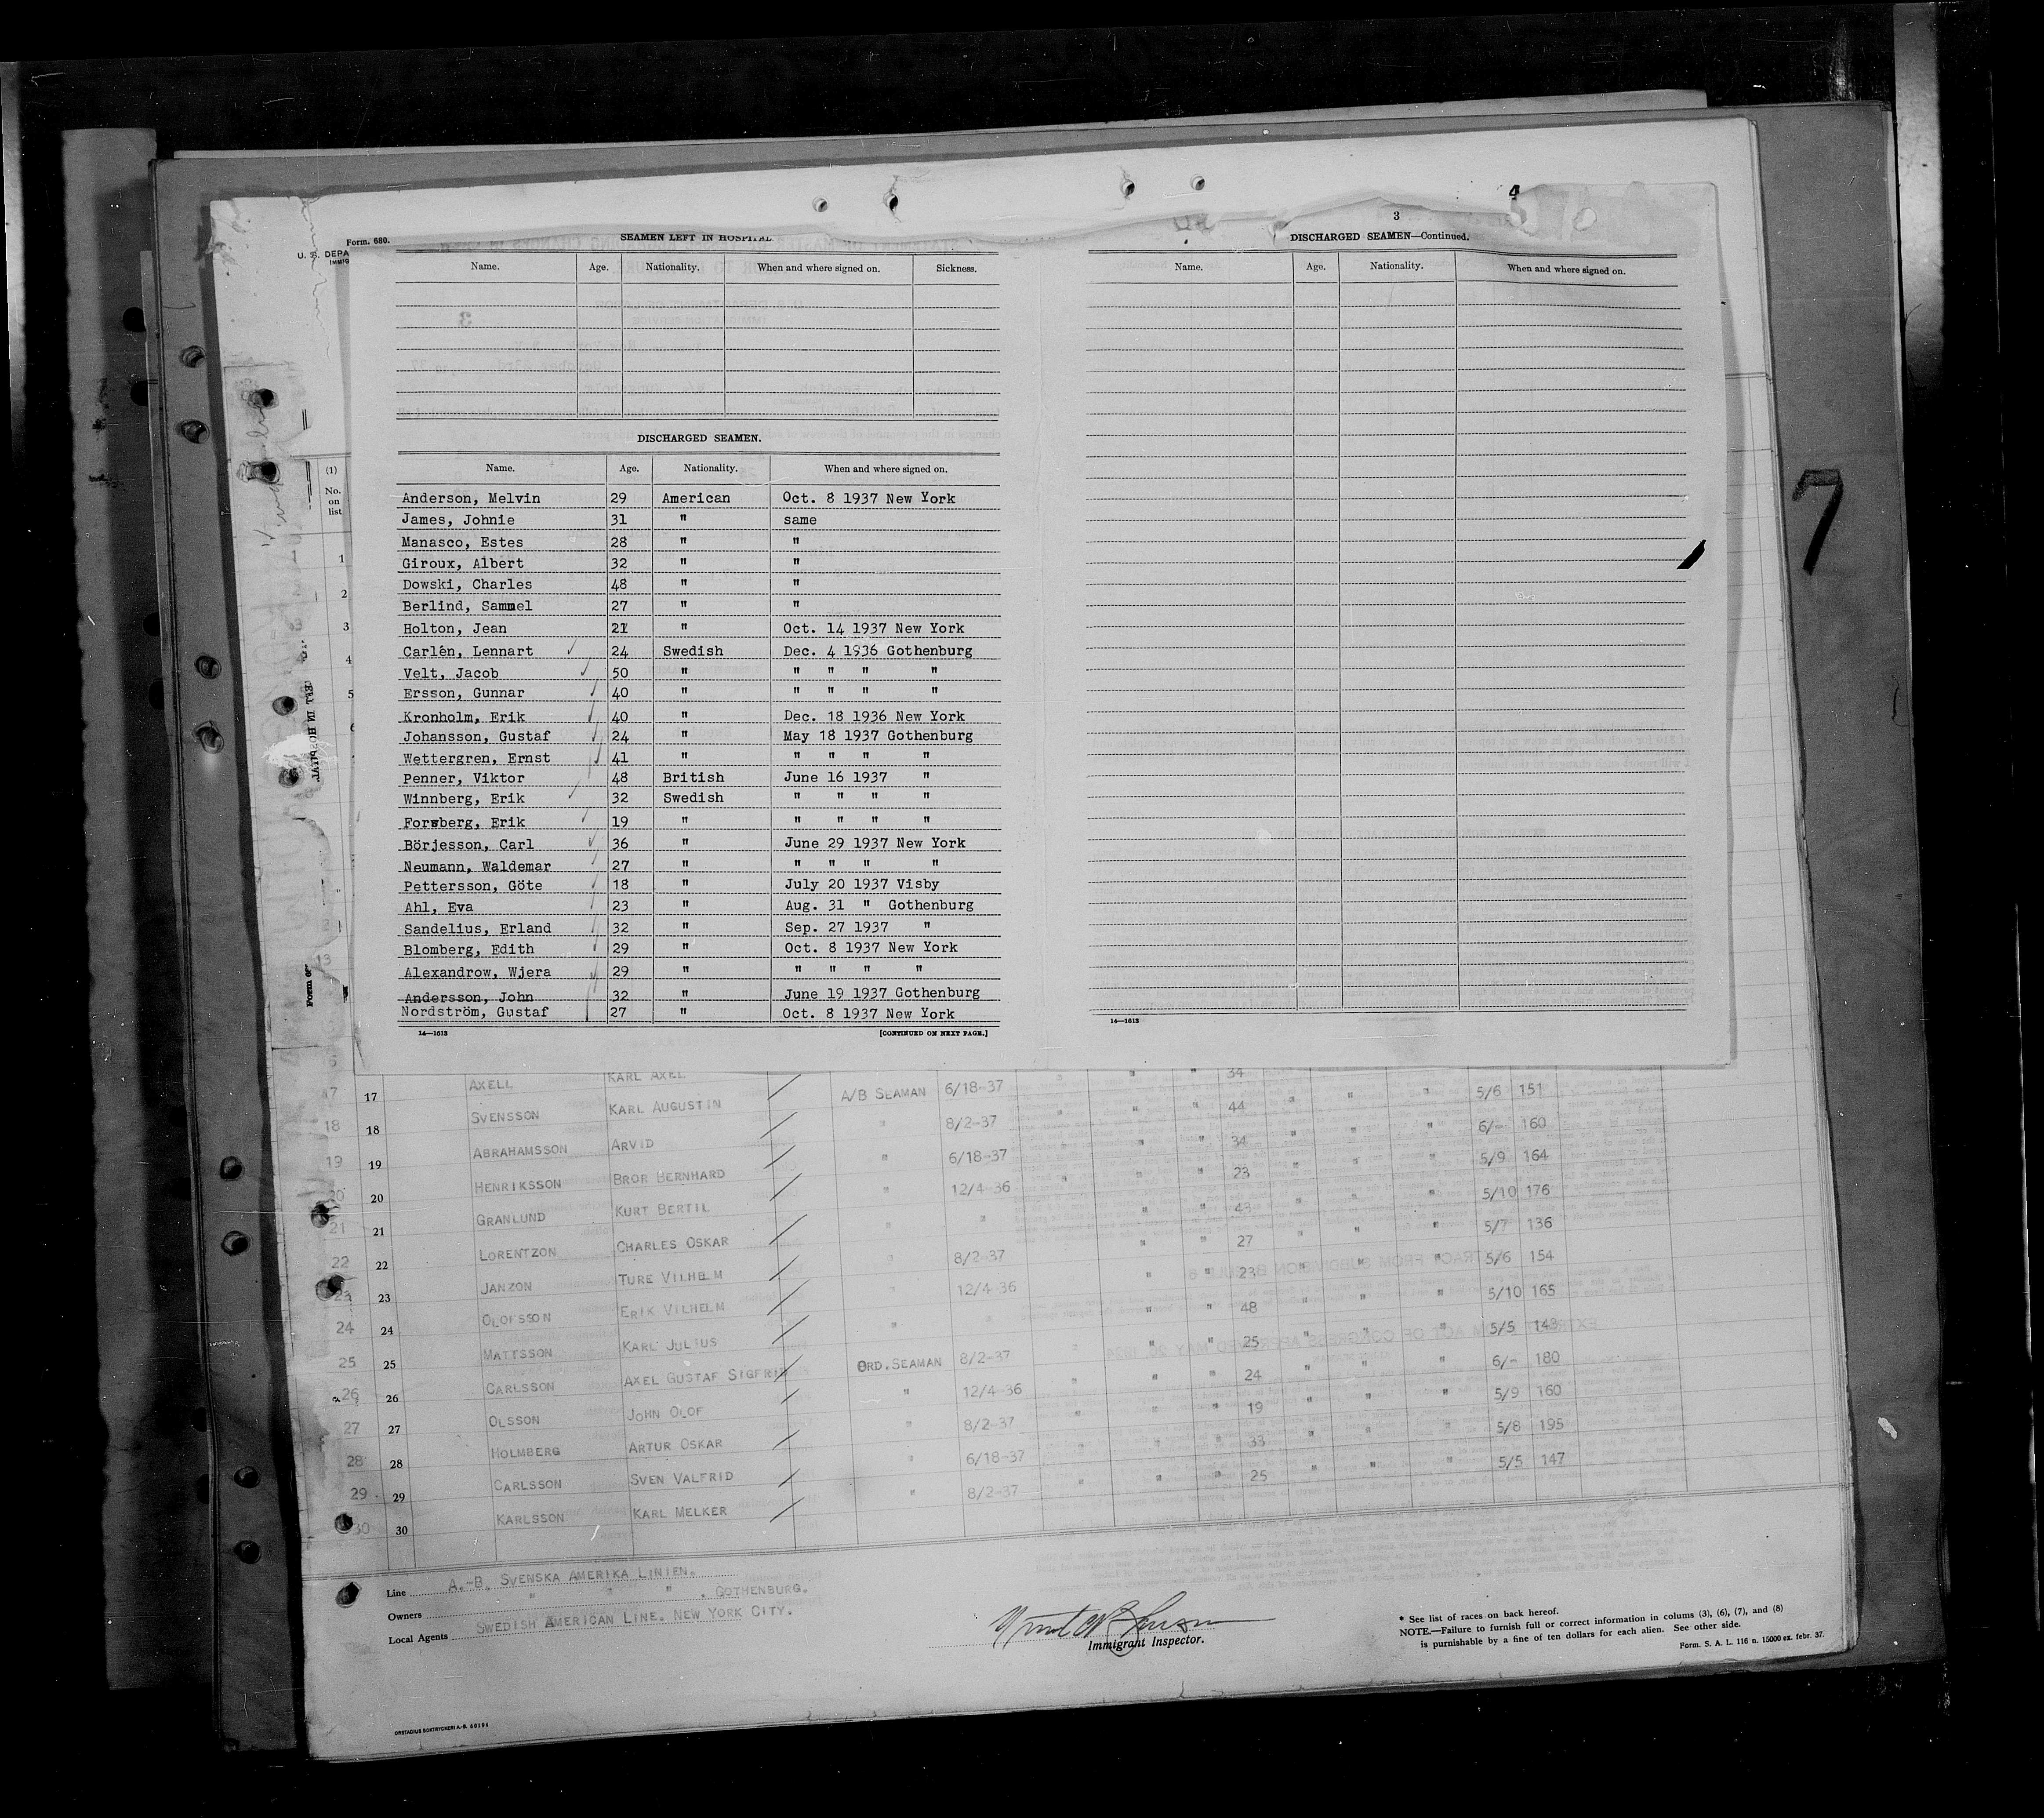 4
3
Form. 680.
SEAMEN LEFT IN HOSPITAL
U. S. DEPA
IMMIG
Name. Age. Nationality. When and where signed on. Sickness.
DISCHARGED SEAMEN.
Name. Age. Nationality. When and where signed on.
Anderson, Melvin 29 American Oct. 8 1937 New York
James, Johnie 31 " same
Manasco, Estes 28 " "
Giroux, Albert 32 " "
Dowski, Charles 48 " "
Berlind, Sammel 27 " "
Holton, Jean 21 " Oct. 14 1937 New York
Carlén, Lennart 24 Swedish Dec. 4 1936 Gothenburg
Velt, Jacob 50 " " " " "
Ersson, Gunnar 40 " " " " "
Kronholm, Erik 40 " Dec. 18 1936 New York
Johansson, Gustaf 24 " May 18 1937 Gothenburg
Wettergren, Ernst 41 " " " " "
Penner, Viktor 48 British June 16 1937 "
Winnberg, Erik 32 Swedish " " " "
Forsberg, Erik 19 " " " " "
Börjesson, Carl 36 " June 29 1937 New York
Neumann, Waldemar 27 " " " " "
Pettersson, Göte 18 " July 20 1937 Visby
Ahl, Eva 23 " Aug. 31 " Gothenburg
Sandelius, Erland 32 " Sep. 27 1937 "
Blomberg, Edith 29 " Oct. 8 1937 New York
Alexandrow, Wjera 29 " " " " "
Andersson, John 32 " June 19 1937 Gothenburg
Nordström, Gustaf 27 " Oct. 8 1937 New York
14—1613 [CONTINUED ON NEXT PAGE.]
DISCHARGED SEAMEN—Continued.
Name. Age. Nationality. When and where signed on.
14—1613
7
(1)
No.
on
list
1
2
3
4
5
17 17 AXELL KARL AXEL A/B SEAMAN 6/18-37 " " " 34 " " " 5/6 151
18 18 SVENSSON KARL AUGUSTIN " 8/2-37 " " " 44 " " " 6/- 160
19 19 ABRAHAMSSON ARVID " 6/18-37 " " 34 " " " 5/9 164
20 20 HENRIKSSON BROR BERNHARD " 12/4-36 " " 23 " " " 5/10 176
21 21 GRANLUND KURT BERTIL " " " " 43 " " " 5/7 136
22 22 LORENTZON CHARLES OSKAR " 8/2-37 " " 27 " " " 5/6 154
23 23 JANZON TURE VILHELM " 12/4-36 " " 23 " " " 5/10 165
24 24 OLOFSSON ERIK VILHELM " " " " 48 " " " 5/5 143
25 25 MATTSSON KARL JULIUS ORD.SEAMAN 8/2-37 " " " 25 " " " 6/- 180
26 26 CARLSSON AXEL GUSTAF SIGFRID " 12/4-36 " " " 24 " " " 5/9 160
27 27 OLSSON JOHN OLOF " 8/2-37 " " " 19 " " " 5/8 195
28 28 HOLMBERG ARTUR OSKAR " 6/18-37 " " " 33 " " " 5/5 147
29 29 CARLSSON SVEN VALFRID " 8/2-37 " " " 25
30 30 KARLSSON KARL MELKER
Line A.-B. SVENSKA AMERIKA LINIEN.
Owners " " " , GOTHENBURG.
Local Agents SWEDISH AMERICAN LINE. NEW YORK CITY.
Immigrant Inspector.
* See list of races on back hereof.
NOTE.—Failure to furnish full or correct information in colums (3), (6), (7), and (8)
is purnishable by a fine of ten dollars for each alien. See other side.
Form. S. A. L. 116 n. 15000 ex. febr. 37.